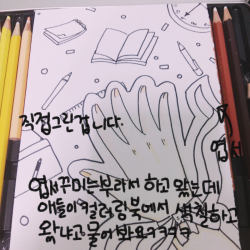 직접그린겁니다.
엽서
엽서꾸미는부라서 하고 왔는데
애들이 컬러링북에서 색칠하고
왔냐고 물어봐요ㅋㅋㅋㅋ